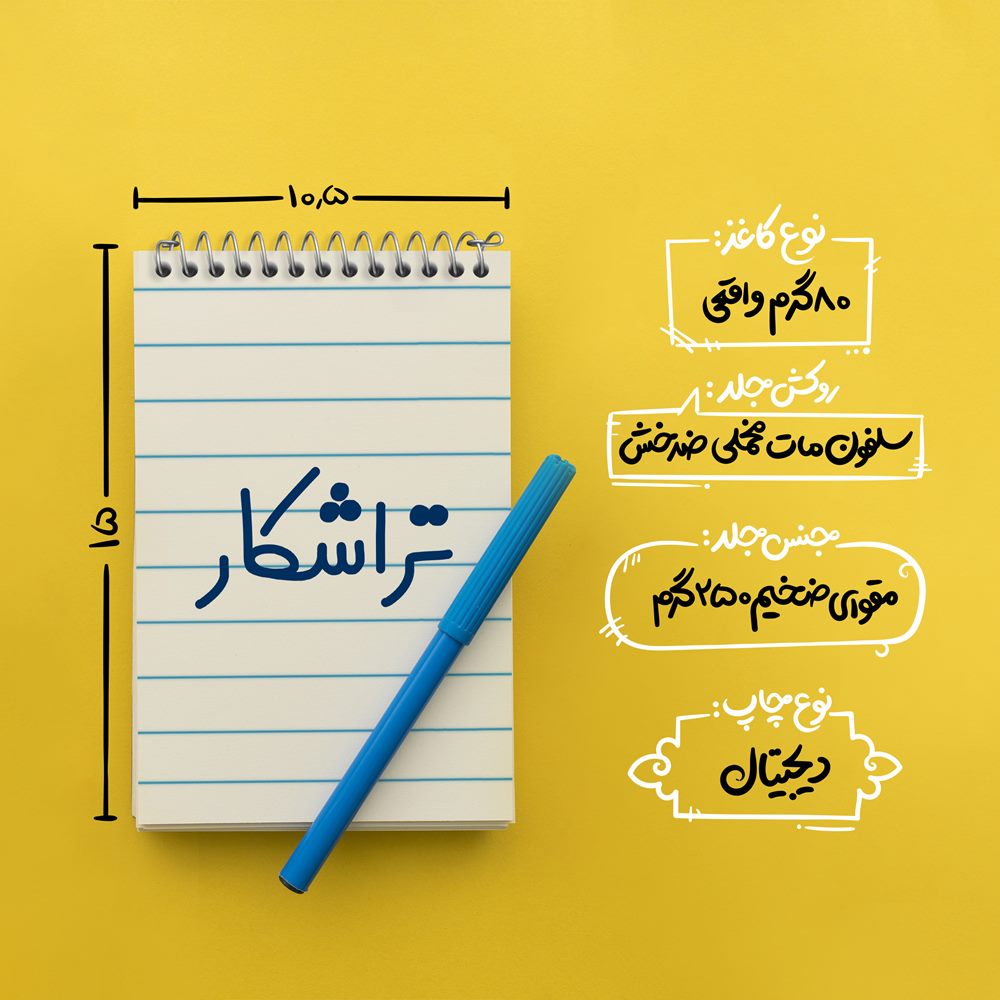 ۱۰٫۵
۱۵
تراشکار
نوع کاغذ:
۸۰ گرم واقعی
روکش جلد:
سلفون مات مخملی ضدخش
جنس جلد:
مقوای ضخیم ۲۵۰ گرم
نوع چاپ:
دیجیتال